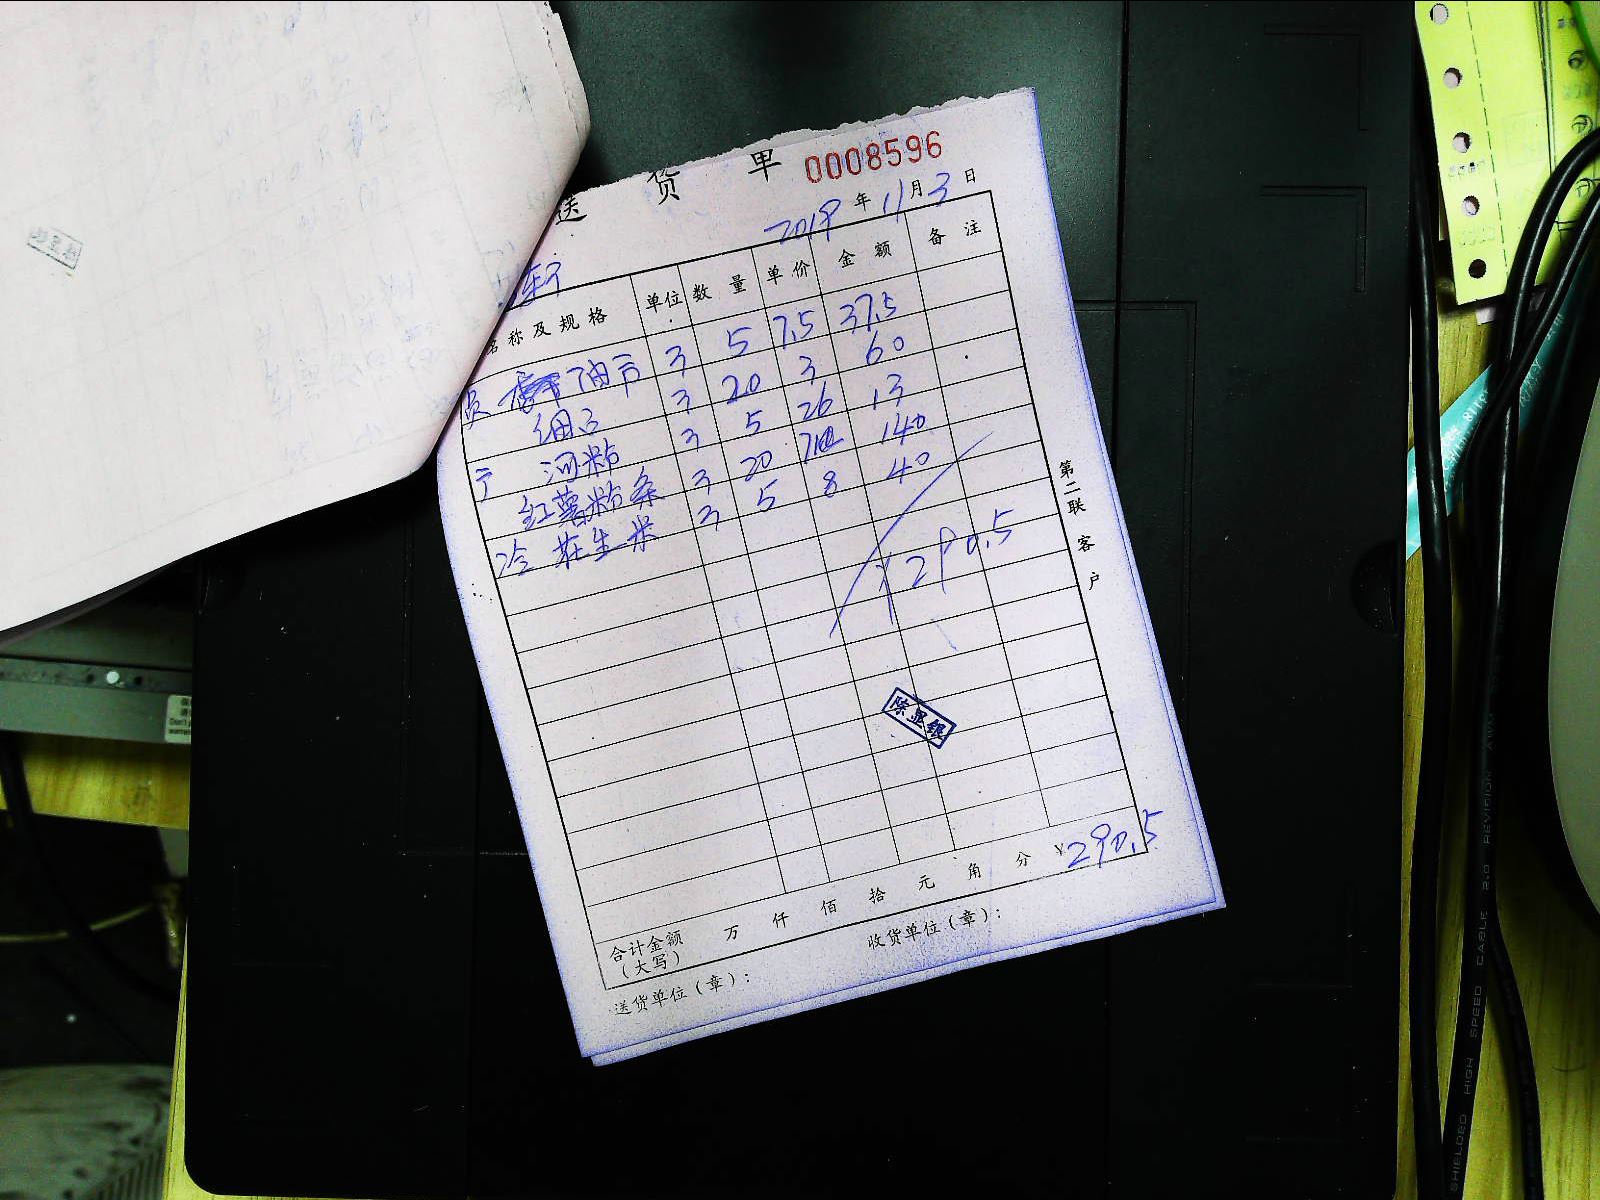 送 货 单 0008596
2019 年 11 月 3 日
名 称 及 规 格 单位 数 量 单价 金 额 备 注
员 油 3 5 7.5 37.5
细 3 20 3 60
河粉 3 5 26 13
红薯粉条 3 20 140
冷 花生米 3 5 8 40
¥290.5
陈亚银
第二联 客户
合计金额（大写） 万 仟 佰 拾 元 角 分 ¥290.5
送货单位（章）： 收货单位（章）：
SHIELDED HIGH SPEED CABLE 2.0 REVISION AWG